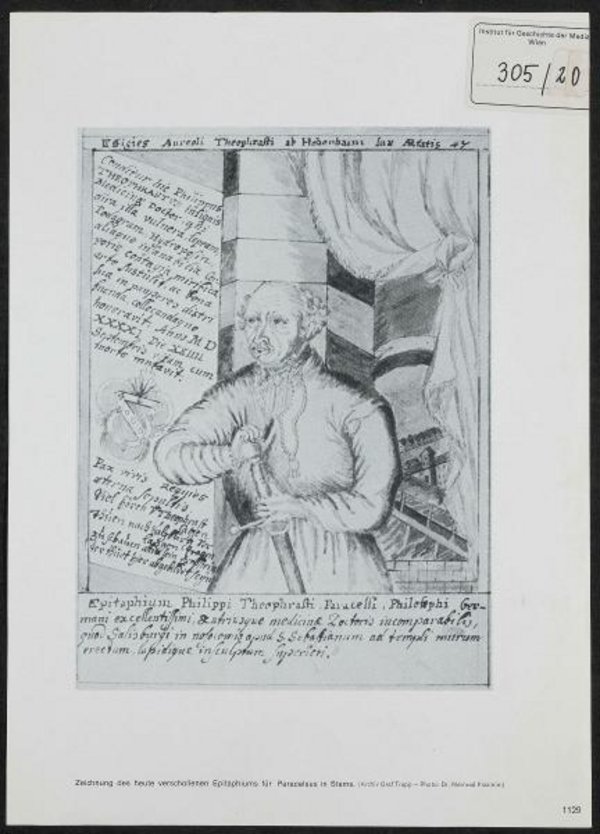 Institut für Geschichte der Mediz
Wien
305/20
Effigies Aureoli Theophrasti ab Hohenhaim Suæ Ætatis 47
Conditur hic Philippus
THEOPHRASTVS insignis
Medicinæ Doctor qui
dira illa vulnera Lepram
Podagram Hydropsim
aliaque insanabilia Cor
poris contagia mirifica
arte sustulit ac bona
sua in pauperes distri
buenda collocandaque
honoravit. Anno M D
XXXXI Die XXIIII
Septembris vitam cum
morte mutavit.
Pax vivis Requies
æterna sepultis
Epitaphium Philippi Theophrasti Paracelsi, Philosophi Ger-
mani excellentissimi, & utriusque medicinæ Doctoris incomparabilis,
quod Salisburgi in nosocomio apud S. Sebastianum ad templi murum
erectum lapidique insculptum
Zeichnung des heute verschollenen Epitaphiums für Paracelsus in Stams. (Archiv Graf Trapp — Photo: Dr.
1129